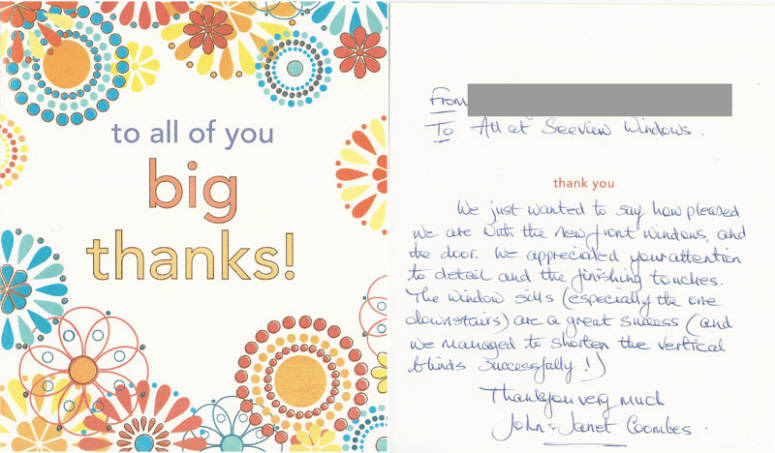 to all of you
big
thanks!
From
To All at Seeview Windows.
thank you
We just wanted to say how pleased
we are with the new front windows, and
the door. We appreciated your attention
to detail and the finishing touches.
The window sills (especially the one
downstairs) are a great success (and
we managed to shorten the vertical
blinds successfully!)
Thankyou very much
John & Janet Coombes.